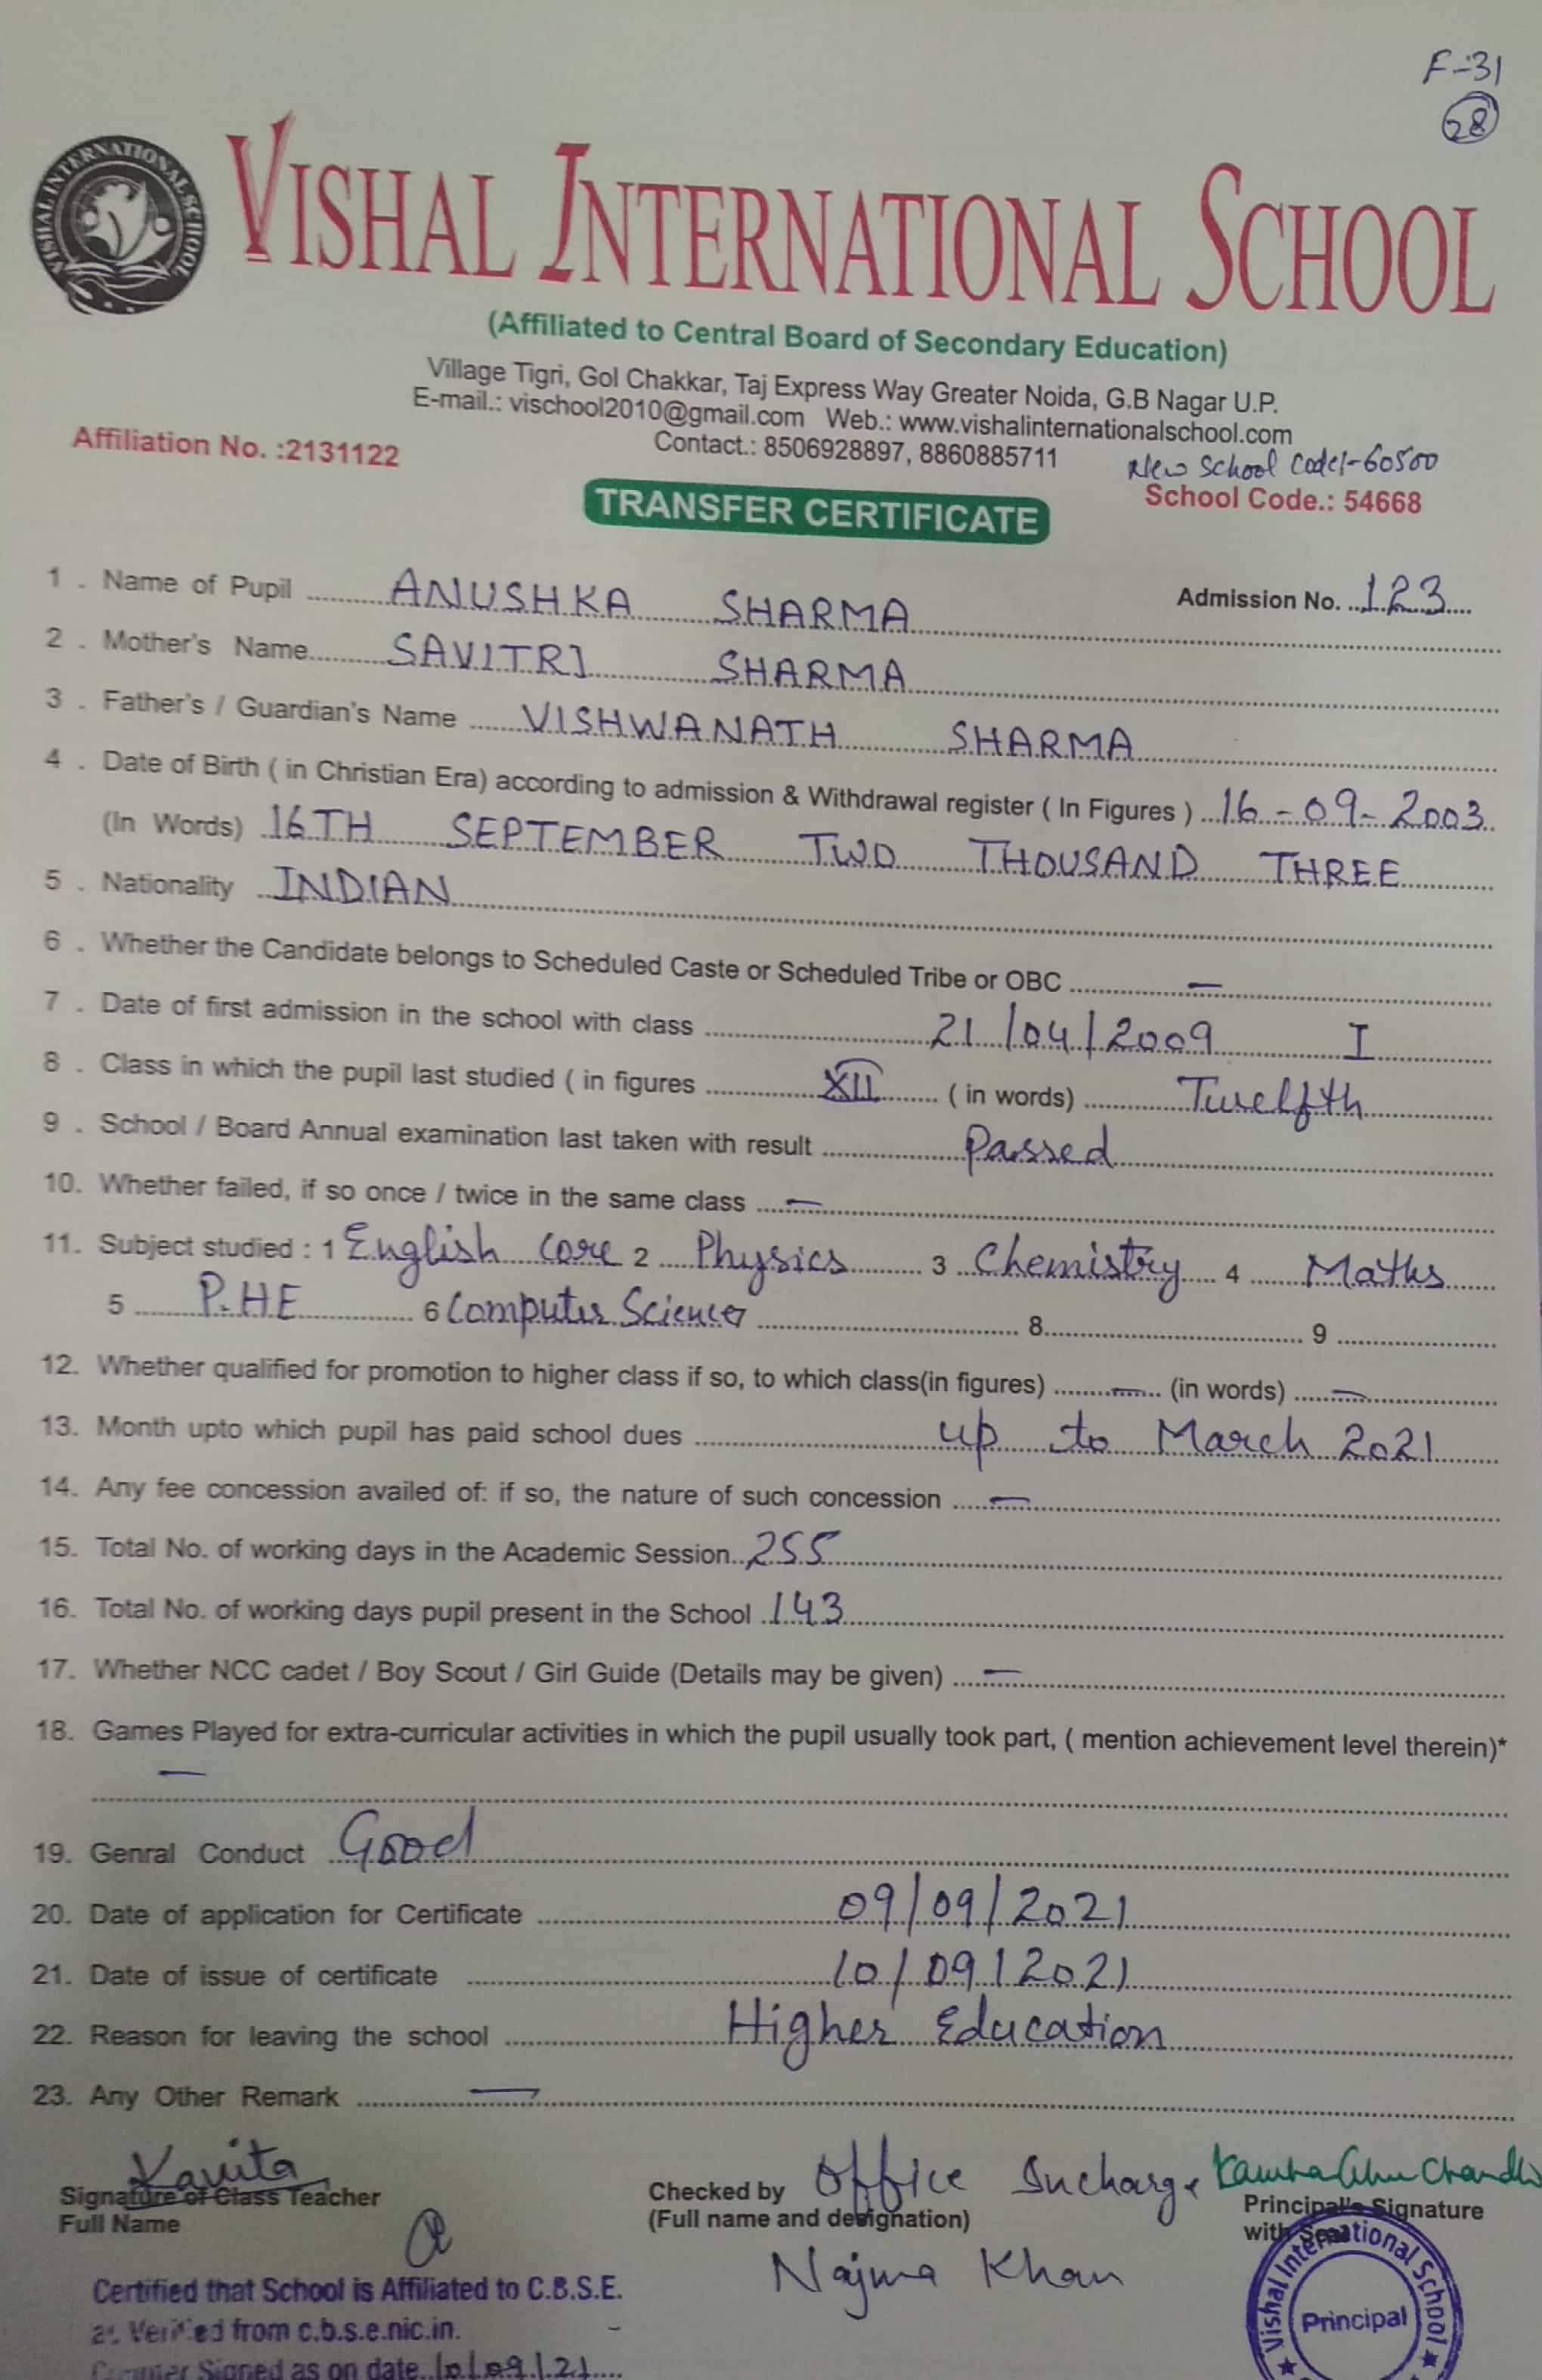 F-31
28
VISHAL INTERNATIONAL SCHOOL
VISHAL INTERNATIONAL SCHOOL
(Affiliated to Central Board of Secondary Education)
Village Tigri, Gol Chakkar, Taj Express Way Greater Noida, G.B Nagar U.P.
E-mail.: vischool2010@gmail.com Web.: www.vishalinternationalschool.com
Affiliation No. :2131122 Contact.: 8506928897, 8860885711 New School Code:-60500
School Code.: 54668
TRANSFER CERTIFICATE
1 . Name of Pupil ANUSHKA SHARMA Admission No. 123
2 . Mother's Name SAVITRI SHARMA
3 . Father's / Guardian's Name VISHWANATH SHARMA
4 . Date of Birth ( in Christian Era) according to admission & Withdrawal register ( In Figures ) 16-09-2003
(In Words) 16TH SEPTEMBER TWO THOUSAND THREE
5 . Nationality INDIAN
6 . Whether the Candidate belongs to Scheduled Caste or Scheduled Tribe or OBC —
7 . Date of first admission in the school with class 21/04/2009 I
8 . Class in which the pupil last studied ( in figures XII ( in words) Twelfth
9 . School / Board Annual examination last taken with result Passed
10. Whether failed, if so once / twice in the same class —
11. Subject studied : 1 English Core 2 Physics 3 Chemistry 4 Maths
5 P.HE 6 Computer Science 7 8 9
12. Whether qualified for promotion to higher class if so, to which class(in figures) — (in words) —
13. Month upto which pupil has paid school dues up to March 2021
14. Any fee concession availed of: if so, the nature of such concession —
15. Total No. of working days in the Academic Session 255
16. Total No. of working days pupil present in the School 143
17. Whether NCC cadet / Boy Scout / Girl Guide (Details may be given) —
18. Games Played for extra-curricular activities in which the pupil usually took part, ( mention achievement level therein)*
—
19. Genral Conduct Good
20. Date of application for Certificate 09/09/2021
21. Date of issue of certificate 10/09/2021
22. Reason for leaving the school Higher Education
23. Any Other Remark —
Kavita
Signature of Class Teacher Checked by Office Incharge
Full Name (Full name and designation) Principal's Signature
with Seal
Najma Khan
Certified that School is Affiliated to C.B.S.E.
as Verified from c.b.s.e.nic.in.
Counter Signed as on date 10/09/21
Vishal International School
Principal